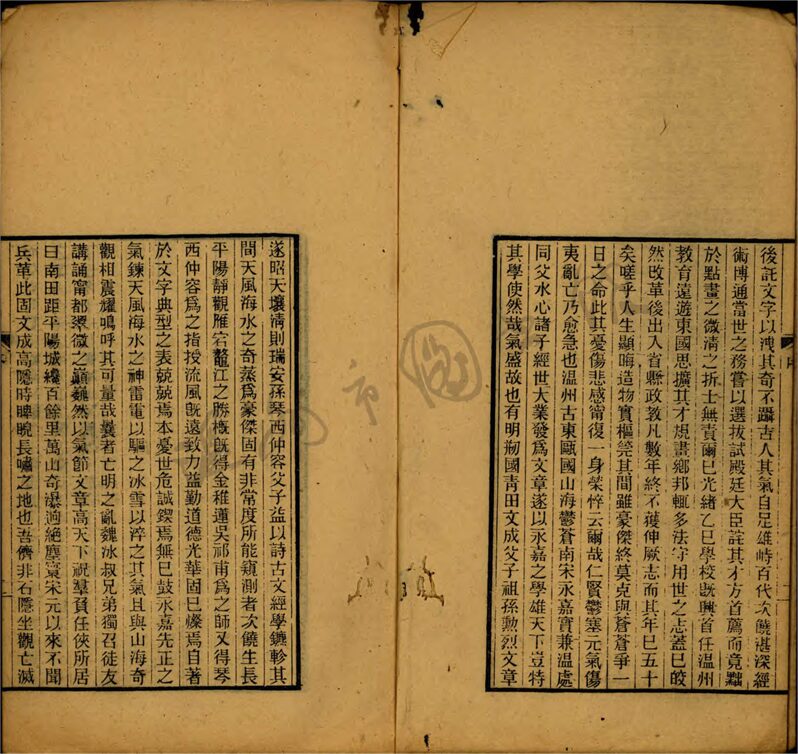 後託文字以洩其奇不躡古人其氣自足雄峙百代次饒湛深經
術博通當世之務嘗以選拔試殿廷大臣詫其才方首薦而竟黜
於點畫之微清之折士無責爾已光緒乙巳學校旣興首任溫州
教育遠遊東國思擴其才規畫鄉邦輒多法守用世之志蓋已皎
然改革後出入省縣政教凡數年終不獲伸厥志而其年已五十
矣嗟乎人生顯晦造物實樞筦其間雖豪傑終莫克與蒼蒼爭一
日之命此其憂傷悲感甯復一身榮悴云爾哉仁賢鬱塞元氣傷
夷亂亡乃愈急也溫州古東甌國山海鬱蒼南宋永嘉實兼溫處
同父水心諸子經世大業發爲文章遂以永嘉之學雄天下豈特
其學使然哉氣盛故也有明剏國青田文成父子祖孫勳烈文章
遂昭天壤淸則瑞安孫琴西仲容父子益以詩古文經學鑣軫其
間天風海水之奇蒸爲豪傑固有非常度所能窺測者次饒生長
平陽靜觀雁宕鼇江之勝槪旣得金稚蓮吳祁甫爲之師又得琴
西仲容爲之指授流風旣遠致力益勤道德光華固已燦焉自著
於文字典型之表兢兢焉本憂世危誠鍥焉無已鼓永嘉先正之
氣鍊天風海水之神雷電以驅之冰雪以淬之其氣且與山海奇
觀相震耀嗚呼其可量哉曩者亡明之亂魏冰叔兄弟獨召徒友
講誦甯都翠微之巓巍然以氣節文章高天下祝羣負任俠所居
曰南田距平陽城纔百餘里萬山奇瀑迥絕塵寰宋元以來不聞
兵革此固文成高隱時睥睨長嘯之地也吾儕非石隱坐觀亡滅